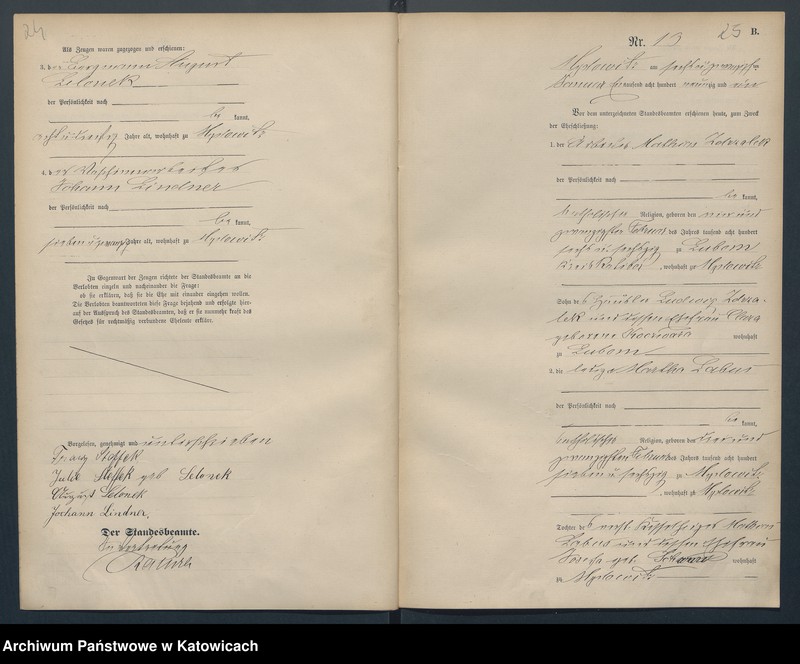 24
Als Zeugen waren zugezogen und erschienen:
3. der Bergmann August
Selonek
der Persönlichkeit nach
be kannt,
Jahre alt, wohnhaft zu Myslowitz
4. der
Johann Lindner
der Persönlichkeit nach
be kannt,
sieben u zwanzig Jahre alt, wohnhaft zu Myslowitz
In Gegenwart der Zeugen richtete der Standesbeamte an die
Verlobten einzeln und nacheinander die Frage:
ob sie erklären, daß sie die Ehe mit einander eingehen wollen.
Die Verlobten beantworteten diese Frage bejahend und erfolgte hier-
auf der Ausspruch des Standesbeamten, daß er sie nunmehr kraft des
Gesetzes für rechtmäßig verbundene Eheleute erkläre.
Vorgelesen, genehmigt und unterschrieben
Franz
Julie geb Selonek
August Selonek
Johann Lindner.
Der Standesbeamte.
In Vertretung
25 B.
Nr. 13
Myslowitz am sechs u zwanzigsten
Januar tausend acht hundert neunzig und vier
Vor dem unterzeichneten Standesbeamten erschienen heute, zum Zweck
der Eheschließung:
1. der Arbeiter Mathias
der Persönlichkeit nach
be kannt,
katholischer Religion, geboren den vier und
zwanzigsten Februar des Jahres tausend acht hundert
sechs u sechszig zu Lubom
Kreis Ratibor, wohnhaft zu Myslowitz
Sohn des Häusler Ludwig
und dessen Ehefrau Clara
geborene wohnhaft
zu Lubom
2. die ledige Martha Labus
der Persönlichkeit nach
be kannt,
katholischer Religion, geboren den vier und
zwanzigsten Februar des Jahres tausend acht hundert
sieben u sechszig zu Myslowitz
, wohnhaft zu Myslowitz
Tochter des
Labus und dessen Ehefrau
Josefa geb. wohnhaft
zu Myslowitz
Archiwum Państwowe w Katowicach